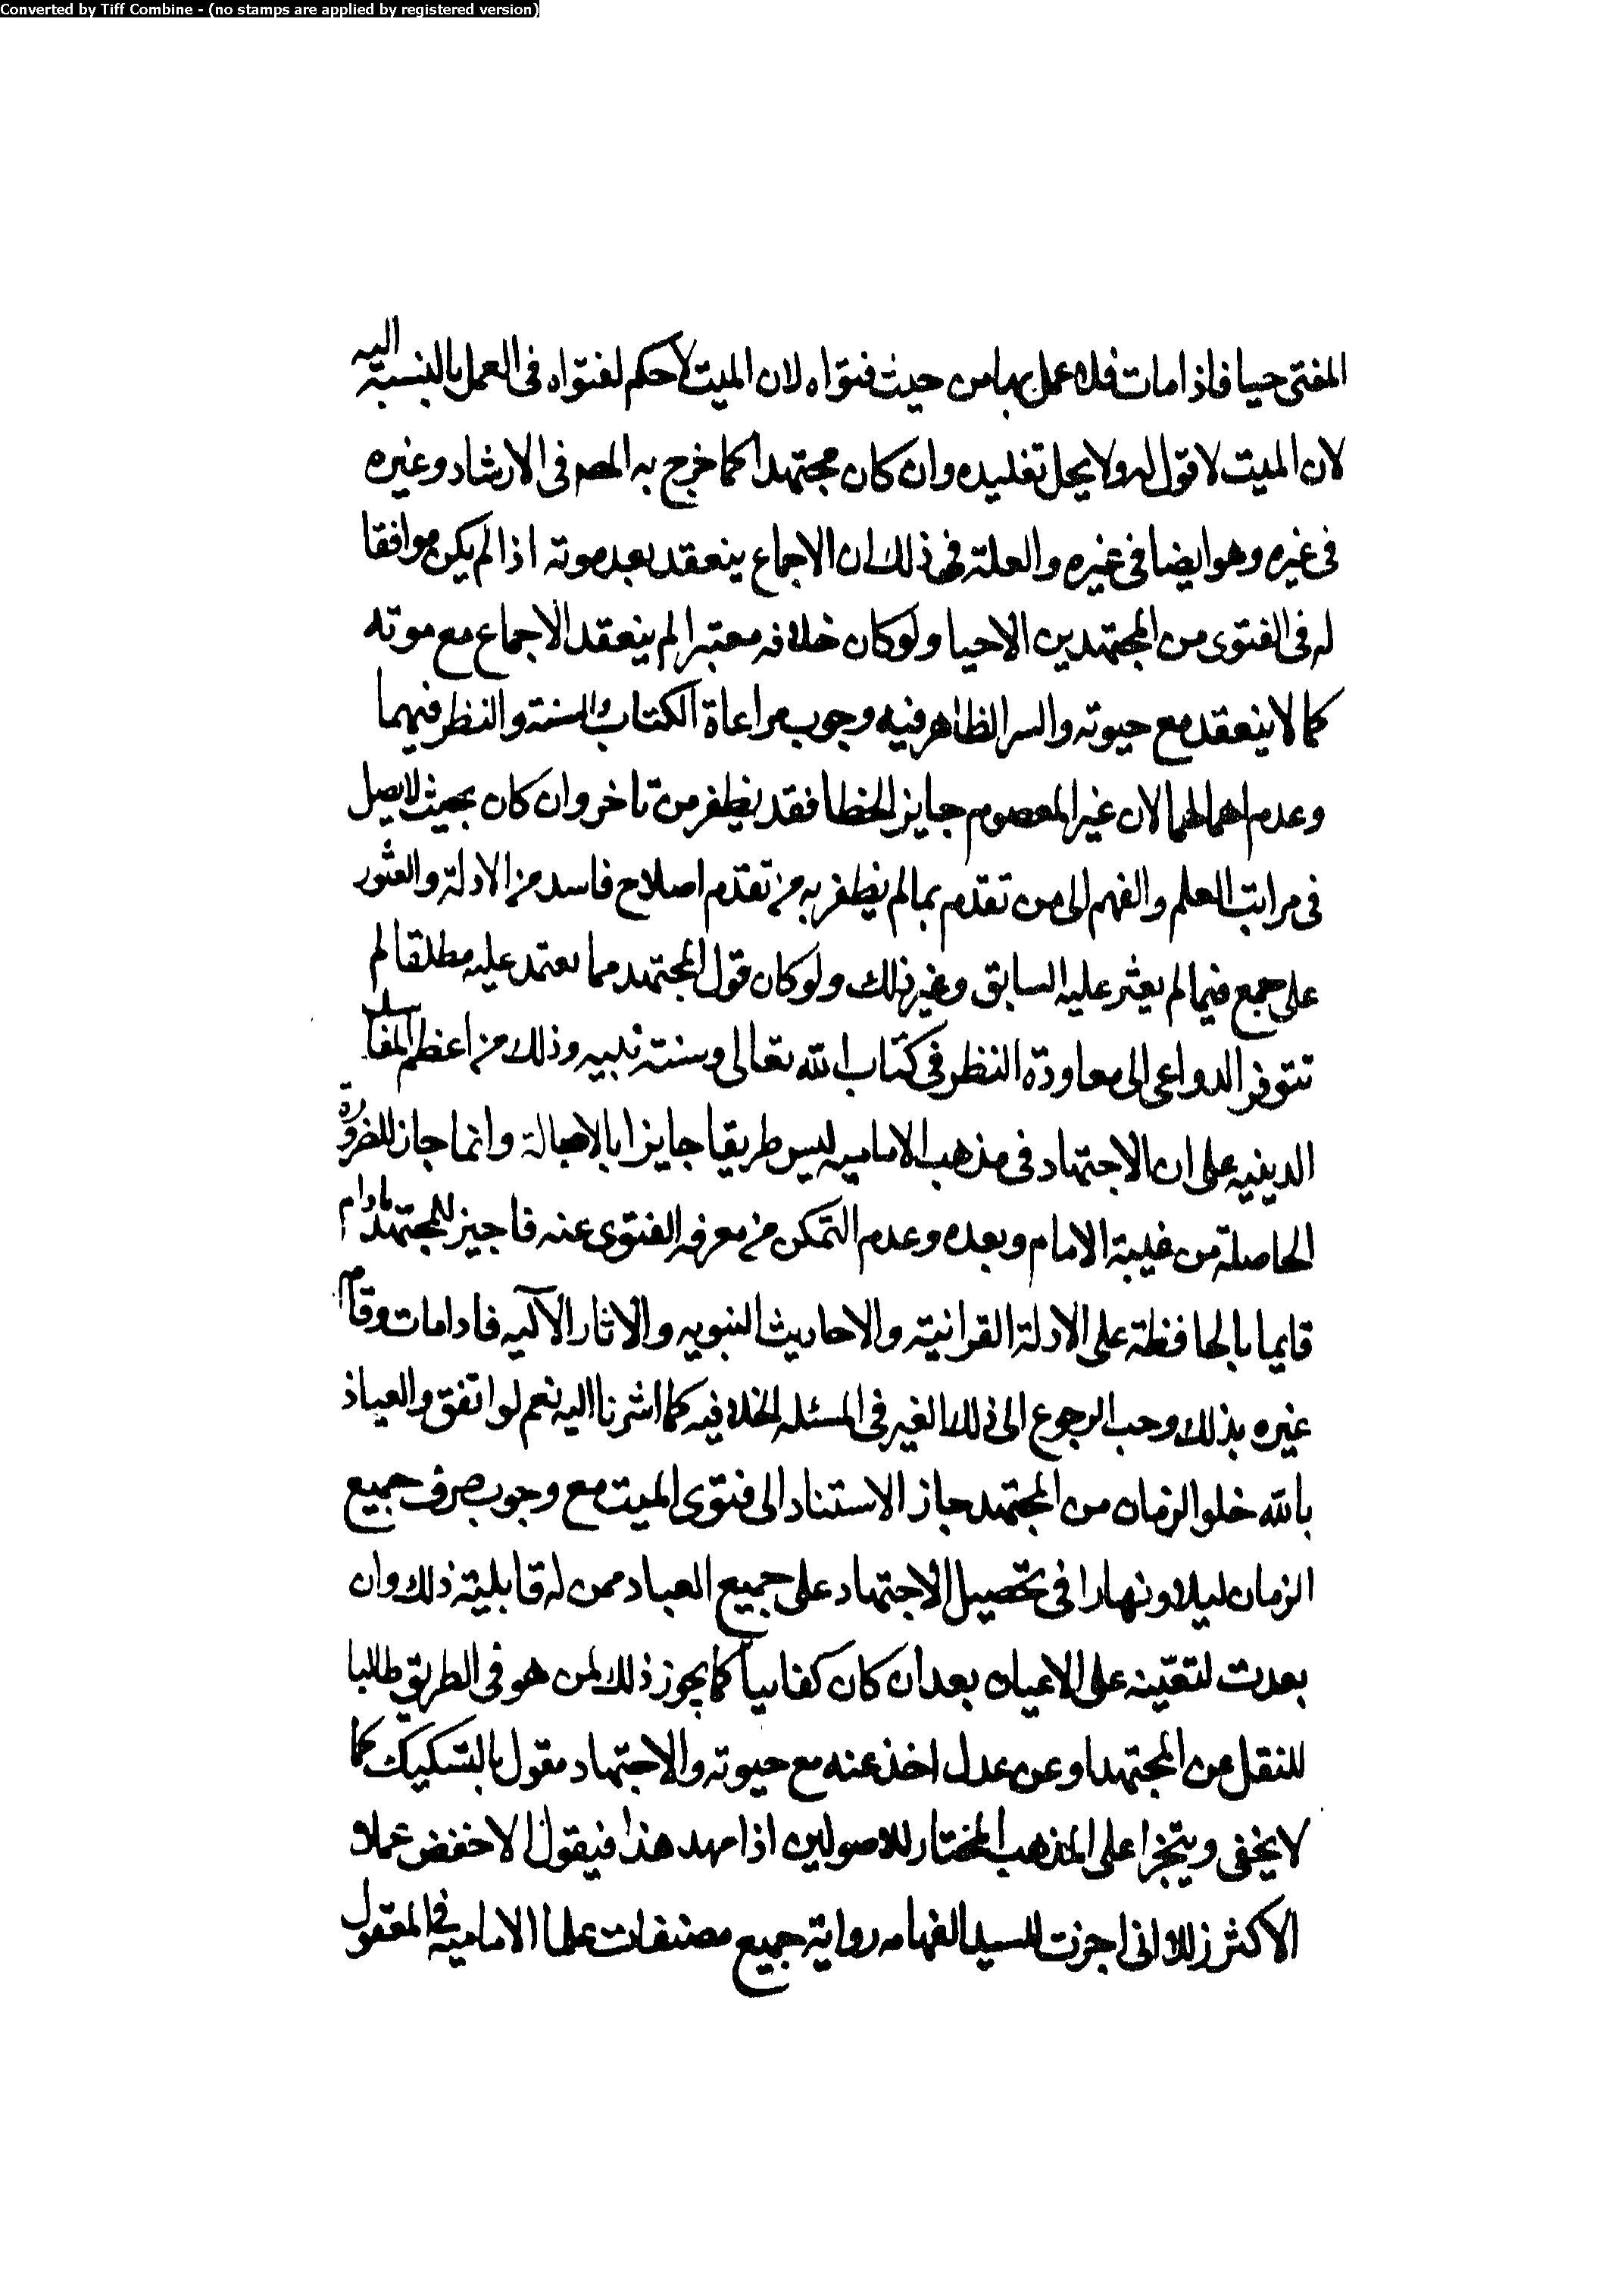 Converted by Tiff Combine - (no stamps are applied by registered version)
المفتى حيا فاذا مات فلا عمل بها من حيث فتواه لان الميت لا حكم لفتواه فى العمل بالنسبة اليه
لان الميت لا قول له ولا يحل تقليده وان كان مجتهدا كما خرج به المصـ فى الارشاد وغيره
فى غيره وهو ايضا فى غيره والعلة فى ذلك ان الاجماع ينعقد بعد موته اذا لم يكن موافقا
له فى الفتوى من المجتهدين الاحيا ولو كان خلافه معتبرا لم ينعقد الاجماع مع موته
كما لا ينعقد مع حيوته والسر الظاهر فيه وجوب مراعاة الكتاب والسنة والنظر فيهما
وعدم اهمالهما لان غير المعصوم جايز الخطا فقد يظفر من تاخر وان كان بحيث لا يصل
فى مراتب العلم والفهم الى من تقدم بما لم يظفر به من تقدم اصلاح فاسد من الادلة والعثور
على جمع فيما لم يعثر عليه السابق وغير ذلك ولو كان قول المجتهد مما يعتمد عليه مطلقا لم
تتوفر الدواعى الى معاودة النظر فى كتاب الله تعالى وسنة نبيه وذلك من اعظم المفاسد
الدينيه على ان الاجتهاد فى مذهب الاماميه ليس طريقا جايزا بالاصالة وانما جاز للضرورة
الحاصلة من غيبة الامام وبعده وعدم التمكن من معرفه الفتوى عنه فاجيز للمجتهد مادام
قايما بالمحافظة على الادلة القرانية والاحاديث النبويه والاثار الآليه فاذا مات وقام
غيره بذلك وجب الرجوع الى ذلك الغير فى المسئله الخلافيه كما اشرنا اليه نعم لو اتفق والعياذ
بالله خلو الزمان من المجتهد جاز الاستناد الى فتوى الميت مع وجوب صرف جميع
الزمان ليلا ونهارا فى تحصيل الاجتهاد على جميع العباد ممن له قابلية ذلك وان
بعدت لتعيّنه على الاعيان بعد ان كان كفاييا كما يجوز ذلك لمن هو فى الطريق طالبا
للنقل عن المجتهد او عن عدل اخذ عنه مع حيوته والاجتهاد مقول بالتشكيك كما
لا يخفى ويتجزا على المذهب المختار للاصوليين اذا مهد هذا فيقول الاخفض عملا
الاكثر زللا انى اجزت للسيد الفهامه رواية جميع مصنفات علما الامامية فى المعقول